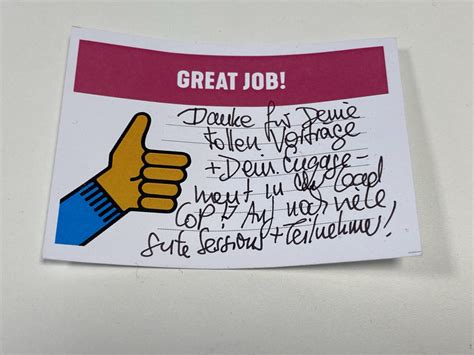 GREAT JOB!
Danke für Deine
tollen Vorträge
+ Dein Engage-
ment in der
CoP! Auf noch viele
gute Sessions + Teilnehmer!